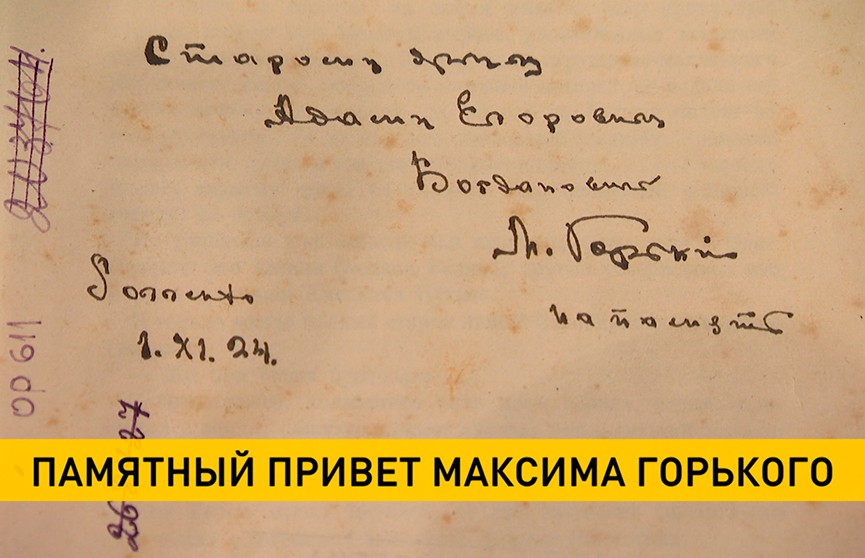 Старому другу
Адаму Егоровичу
Богдановичу
М. Горький
на память
Sorrento
1. XI. 24.
ОР 611
27
26
ПАМЯТНЫЙ ПРИВЕТ МАКСИМА ГОРЬКОГО